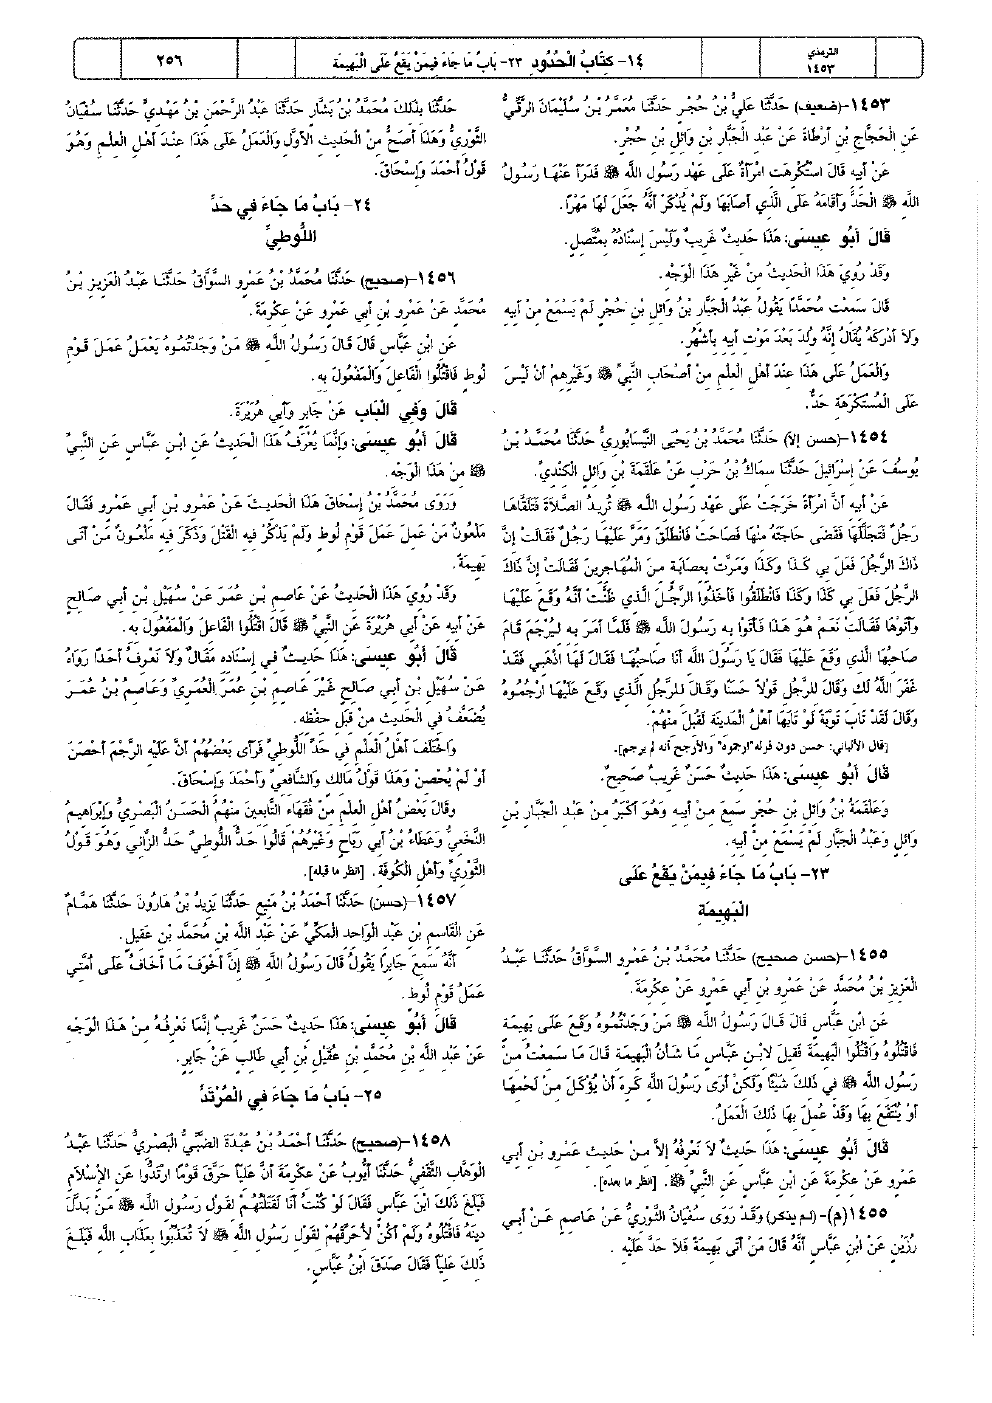 الترمذي
١٤٥٣
١٤- كتَابُ الْحُدُود ٢٣- بَابُ مَا جَاءَ فيمَنْ يَقَعُ عَلَى الْبَهيمَة
٢٥٦
١٤٥٣-(ضعيف) حَدَّثَنَا عَليُّ بْنُ حُجْر حَدَّثَنَا مُعَمَّرُ بْنُ سُلَيْمَانَ الرَّقِّيُّ
عَنِ الْحَجَّاجِ بْنِ أَرْطَاةَ عَنْ عَبْد الْجَبَّارِ بْنِ وَائِلِ بْنِ حُجْر.
عَنْ أَبيه قَالَ اسْتُكْرِهَت امْرَأَةٌ عَلَى عَهْد رَسُول اللَّه ﷺ فَدَرَأَ عَنْهَا رَسُولُ
اللَّه ﷺ الْحَدَّ وَأَقَامَهُ عَلَى الَّذي أَصَابَهَا وَلَمْ يُذْكَرْ أَنَّهُ جَعَلَ لَهَا مَهْرًا.
قَالَ أَبُو عيسَى: هَذَا حَديثٌ غَريبٌ وَلَيْسَ إسْنَادُهُ بمُتَّصل.
وَقَدْ رُويَ هَذَا الْحَديثُ منْ غَيْر هَذَا الْوَجْه.
قَالَ سَمعْت مُحَمَّدًا يَقُولُ عَبْدُ الْجَبَّار بْنُ وَائِل بْن حُجْر لَمْ يَسْمَعْ منْ أَبيه
وَلاَ أَدْرَكَهُ يُقَالُ إنَّهُ وُلدَ بَعْدَ مَوْت أَبيه بأَشْهُر.
وَالْعَمَلُ عَلَى هَذَا عنْدَ أَهْل الْعلْم منْ أَصْحَاب النَّبيِّ ﷺ وَغَيْرهمْ أَنْ لَيْسَ
عَلَى الْمُسْتَكْرَهَة حَدٌّ.
١٤٥٤-(حسن إلا) حَدَّثَنَا مُحَمَّدُ بْنُ يَحْيَى النَّيْسَابُوريُّ حَدَّثَنَا مُحَمَّدُ بْنُ
يُوسُفَ عَنْ إسْرَائيلَ حَدَّثَنَا سمَاكُ بْنُ حَرْب عَنْ عَلْقَمَةَ بْن وَائل الْكنْديِّ.
عَنْ أَبيه أَنَّ امْرَأَةً خَرَجَتْ عَلَى عَهْد رَسُول اللَّه ﷺ تُريدُ الصَّلاَةَ فَتَلَقَّاهَا
رَجُلٌ فَتَجَلَّلَهَا فَقَضَى حَاجَتَهُ منْهَا فَصَاحَتْ فَانْطَلَقَ وَمَرَّ عَلَيْهَا رَجُلٌ فَقَالَتْ إنَّ
ذَاكَ الرَّجُلَ فَعَلَ بي كَذَا وَكَذَا وَمَرَّتْ بعصَابَة منَ الْمُهَاجرينَ فَقَالَتْ إنَّ ذَاكَ
الرَّجُلَ فَعَلَ بي كَذَا وَكَذَا فَانْطَلَقُوا فَأَخَذُوا الرَّجُلَ الَّذي ظَنَّتْ أَنَّهُ وَقَعَ عَلَيْهَا
وَأَتَوْهَا فَقَالَتْ نَعَمْ هُوَ هَذَا فَأَتَوْا به رَسُولَ اللَّه ﷺ فَلَمَّا أَمَرَ به ليُرْجَمَ قَامَ
صَاحبُهَا الَّذي وَقَعَ عَلَيْهَا فَقَالَ يَا رَسُولَ اللَّه أَنَا صَاحبُهَا فَقَالَ لَهَا اذْهَبي فَقَدْ
غَفَرَ اللَّهُ لَك وَقَالَ للرَّجُل قَوْلاً حَسَنًا وَقَالَ للرَّجُل الَّذي وَقَعَ عَلَيْهَا ارْجُمُوهُ
وَقَالَ لَقَدْ تَابَ تَوْبَةً لَوْ تَابَهَا أَهْلُ الْمَدينَة لَقُبلَ منْهُمْ.
[قال الألباني: حسن دون قوله "ارجموه" والأرجح أنه لم يرجم].
قَالَ أَبُو عيسَى: هَذَا حَديثٌ حَسَنٌ غَريبٌ صَحيحٌ.
وَعَلْقَمَةُ بْنُ وَائل بْن حُجْر سَمعَ منْ أَبيه وَهُوَ أَكْبَرُ منْ عَبْد الْجَبَّار بْن
وَائل وَعَبْدُ الْجَبَّار لَمْ يَسْمَعْ منْ أَبيه.
٢٣- بَابُ مَا جَاءَ فيمَنْ يَقَعُ عَلَى
الْبَهيمَة
١٤٥٥-(حسن صحيح) حَدَّثَنَا مُحَمَّدُ بْنُ عَمْرو السَّوَّاقُ حَدَّثَنَا عَبْدُ
الْعَزيز بْنُ مُحَمَّد عَنْ عَمْرو بْن أَبي عَمْرو عَنْ عكْرمَةَ.
عَن ابْن عَبَّاس قَالَ قَالَ رَسُولُ اللَّه ﷺ مَنْ وَجَدْتُمُوهُ وَقَعَ عَلَى بَهيمَة
فَاقْتُلُوهُ وَاقْتُلُوا الْبَهيمَةَ فَقيلَ لابْن عَبَّاس مَا شَأْنُ الْبَهيمَة قَالَ مَا سَمعْتُ منْ
رَسُول اللَّه ﷺ في ذَلكَ شَيْئًا وَلَكنْ أَرَى رَسُولَ اللَّه كَرهَ أَنْ يُؤْكَلَ منْ لَحْمهَا
أَوْ يُنْتَفَعَ بهَا وَقَدْ عُملَ بهَا ذَلكَ الْعَمَلُ.
قَالَ أَبُو عيسَى: هَذَا حَديثٌ لاَ نَعْرفُهُ إلاَّ منْ حَديث عَمْرو بْن أَبي
عَمْرو عَنْ عكْرمَةَ عَن ابْن عَبَّاس عَن النَّبيِّ ﷺ. [انظر ما بعده].
١٤٥٥(م)-(لم يذكر) وَقَدْ رَوَى سُفْيَانُ الثَّوْريُّ عَنْ عَاصم عَنْ أَبي
رُزَيْن عَن ابْن عَبَّاس أَنَّهُ قَالَ مَنْ أَتَى بَهيمَةً فَلاَ حَدَّ عَلَيْه .
حَدَّثَنَا بذَلكَ مُحَمَّدُ بْنُ بَشَّار حَدَّثَنَا عَبْدُ الرَّحْمَن بْنُ مَهْديٍّ حَدَّثَنَا سُفْيَانُ
الثَّوْريُّ وَهَذَا أَصَحُّ منَ الْحَديث الأَوَّل وَالْعَمَلُ عَلَى هَذَا عنْدَ أَهْل الْعلْم وَهُوَ
قَوْلُ أَحْمَدَ وَإسْحَاقَ.
٢٤- بَابُ مَا جَاءَ في حَدِّ
اللُّوطيِّ
١٤٥٦-(صحيح) حَدَّثَنَا مُحَمَّدُ بْنُ عَمْرو السَّوَّاقُ حَدَّثَنَا عَبْدُ الْعَزيز بْنُ
مُحَمَّد عَنْ عَمْرو بْن أَبي عَمْرو عَنْ عكْرمَةَ.
عَن ابْن عَبَّاس قَالَ قَالَ رَسُولُ اللَّه ﷺ مَنْ وَجَدْتُمُوهُ يَعْمَلُ عَمَلَ قَوْم
لُوط فَاقْتُلُوا الْفَاعلَ وَالْمَفْعُولَ به.
قَالَ وَفي الْبَاب عَنْ جَابر وَأَبي هُرَيْرَةَ.
قَالَ أَبُو عيسَى: وَإنَّمَا يُعْرَفُ هَذَا الْحَديثُ عَن ابْن عَبَّاس عَن النَّبيِّ
ﷺ منْ هَذَا الْوَجْه.
وَرَوَى مُحَمَّدُ بْنُ إسْحَاقَ هَذَا الْحَديثَ عَنْ عَمْرو بْن أَبي عَمْرو فَقَالَ
مَلْعُونٌ مَنْ عَملَ عَمَلَ قَوْم لُوط وَلَمْ يَذْكُرْ فيه الْقَتْلَ وَذَكَرَ فيه مَلْعُونٌ مَنْ أَتَى
بَهيمَةً.
وَقَدْ رُويَ هَذَا الْحَديثُ عَنْ عَاصم بْن عُمَرَ عَنْ سُهَيْل بْن أَبي صَالح
عَنْ أَبيه عَنْ أَبي هُرَيْرَةَ عَن النَّبيِّ ﷺ قَالَ اقْتُلُوا الْفَاعلَ وَالْمَفْعُولَ به.
قَالَ أَبُو عيسَى: هَذَا حَديثٌ في إسْنَاده مَقَالٌ وَلاَ نَعْرفُ أَحَدًا رَوَاهُ
عَنْ سُهَيْل بْن أَبي صَالح غَيْرَ عَاصم بْن عُمَرَ الْعُمَريِّ وَعَاصمُ بْنُ عُمَرَ
يُضَعَّفُ في الْحَديث منْ قبَل حفْظه.
وَاخْتَلَفَ أَهْلُ الْعلْم في حَدِّ اللُّوطيِّ فَرَأَى بَعْضُهُمْ أَنَّ عَلَيْه الرَّجْمَ أَحْصَنَ
أَوْ لَمْ يُحْصنْ وَهَذَا قَوْلُ مَالك وَالشَّافعيِّ وَأَحْمَدَ وَإسْحَاقَ.
وَقَالَ بَعْضُ أَهْل الْعلْم منْ فُقَهَاء التَّابعينَ منْهُمُ الْحَسَنُ الْبَصْريُّ وَإبْرَاهيمُ
النَّخَعيُّ وَعَطَاءُ بْنُ أَبي رَبَاح وَغَيْرُهُمْ قَالُوا حَدُّ اللُّوطيِّ حَدُّ الزَّاني وَهُوَ قَوْلُ
الثَّوْريِّ وَأَهْل الْكُوفَة . [انظر ما قبله].
١٤٥٧-(حسن) حَدَّثَنَا أَحْمَدُ بْنُ مَنيع حَدَّثَنَا يَزيدُ بْنُ هَارُونَ حَدَّثَنَا هَمَّامٌ
عَن الْقَاسم بْن عَبْد الْوَاحد الْمَكِّيِّ عَنْ عَبْد اللَّه بْن مُحَمَّد بْن عَقيل.
أَنَّهُ سَمعَ جَابرًا يَقُولُ قَالَ رَسُولُ اللَّه ﷺ إنَّ أَخْوَفَ مَا أَخَافُ عَلَى أُمَّتي
عَمَلُ قَوْم لُوط.
قَالَ أَبُو عيسَى: هَذَا حَديثٌ حَسَنٌ غَريبٌ إنَّمَا نَعْرفُهُ منْ هَذَا الْوَجْه
عَنْ عَبْد اللَّه بْن مُحَمَّد بْن عَقيل بْن أَبي طَالب عَنْ جَابر.
٢٥- بَابُ مَا جَاءَ في الْمُرْتَدِّ
١٤٥٨-(صحيح) حَدَّثَنَا أَحْمَدُ بْنُ عَبْدَةَ الضَّبِّيُّ الْبَصْريُّ حَدَّثَنَا عَبْدُ
الْوَهَّاب الثَّقَفيُّ حَدَّثَنَا أَيُّوبُ عَنْ عكْرمَةَ أَنَّ عَليًّا حَرَّقَ قَوْمًا ارْتَدُّوا عَن الإسْلاَم
فَبَلَغَ ذَلكَ ابْنَ عَبَّاس فَقَالَ لَوْ كُنْتُ أَنَا لَقَتَلْتُهُمْ لقَوْل رَسُول اللَّه ﷺ مَنْ بَدَّلَ
دينَهُ فَاقْتُلُوهُ وَلَمْ أَكُنْ لأُحَرِّقَهُمْ لقَوْل رَسُول اللَّه ﷺ لاَ تُعَذِّبُوا بعَذَاب اللَّه فَبَلَغَ
ذَلكَ عَليًّا فَقَالَ صَدَقَ ابْنُ عَبَّاس.